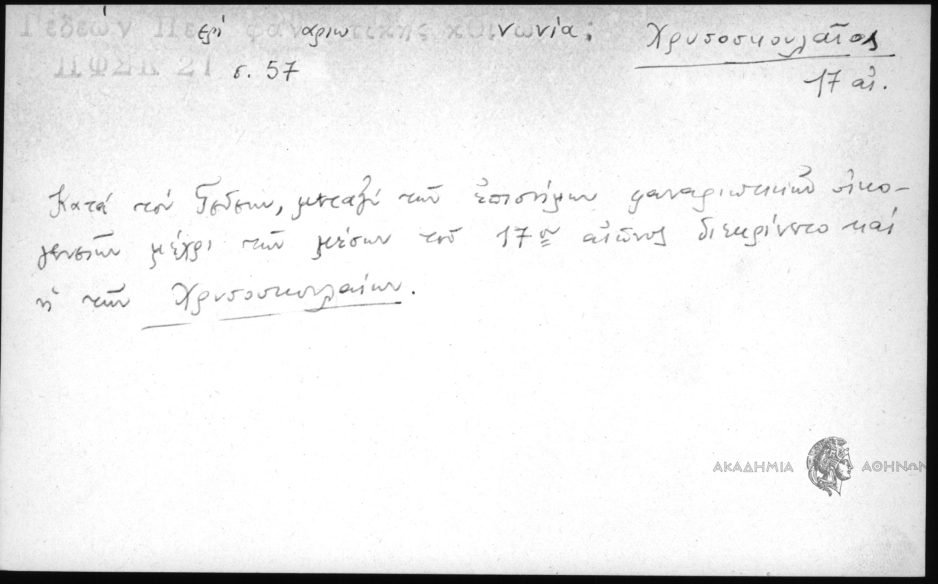 Γεδεών Περί φαναριωτικῆς κοινωνία; Χρυσοσκουλαῖος
ΠΦΣΚ 21 σ. 57
17 αἰ.
Κατά τόν Γεδεών, μεταξύ τῶν ἐπισήμων φαναριωτικῶν οἰκο-
γενειῶν μέχρι τῶν μέσων τοῦ 17ου αἰῶνος διεκρίνετο καί
ἡ τῶν Χρυσοσκουλαίων.
ΑΚΑΔΗΜΙΑ ΑΘΗΝΩΝ